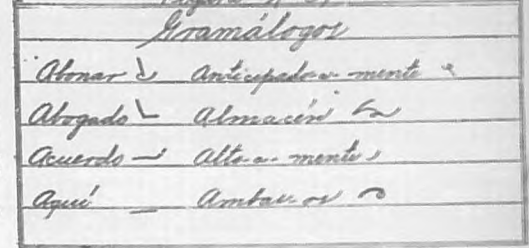 Gramálogos
Abonar Anticipado-a-mente
Abogado Almacén
Acuerdo Alto-a-mente
Aquí Ambas-os